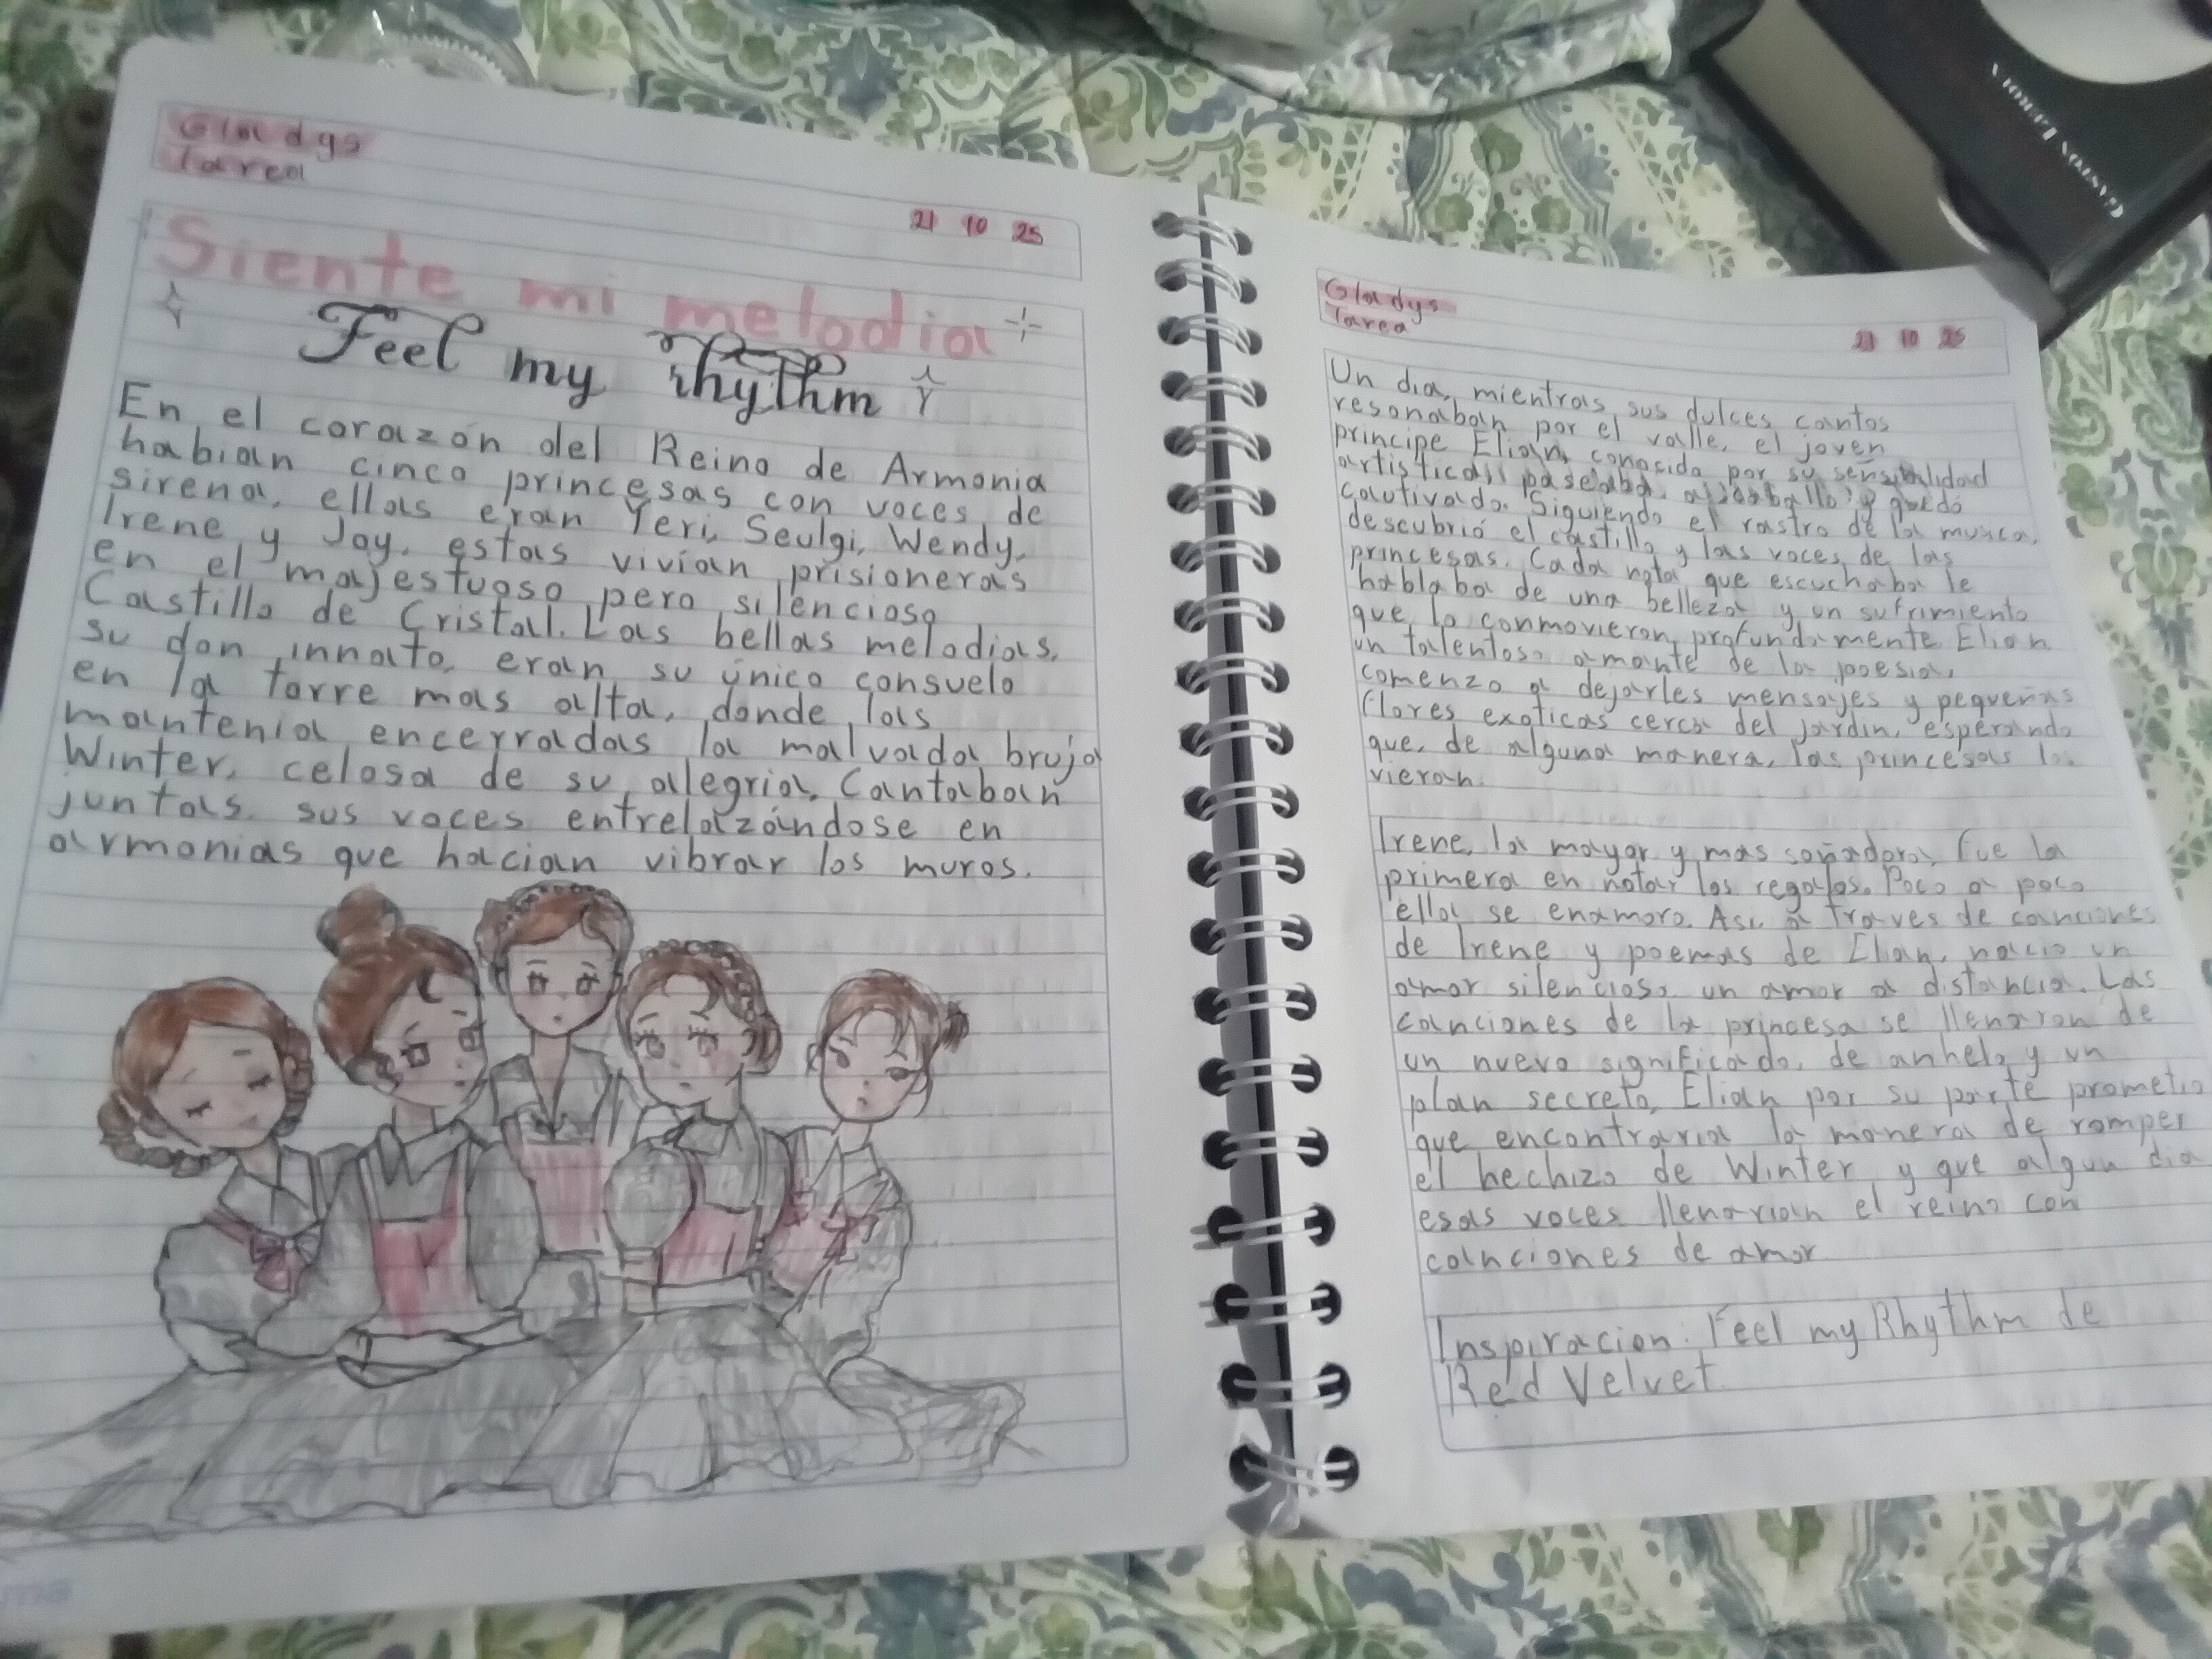 Gladys
Tarea
21 10 25
Siente mi melodia
Feel my rhythm
En el corazón del Reino de Armonia
habian cinco princesas con voces de
sirena, ellas eran Yeri, Seulgi, Wendy,
Irene y Joy, estas vivían prisioneras
en el majestuoso pero silencioso
Castillo de Cristal. Las bellas melodias,
su don innato, eran su único consuelo
en la torre mas alta, donde las
mantenia encerradas la malvada bruja
Winter, celosa de su alegria. Cantaban
juntas, sus voces entrelazándose en
armonias que hacian vibrar los muros.
Gladys
Tarea
21 10 25
Un dia, mientras sus dulces cantos
resonaban por el valle, el joven
principe Elian, conocido por su sensibilidad
artistica, paseaba a caballo y quedó
cautivado. Siguiendo el rastro de la musica,
descubrió el castillo y las voces de las
princesas. Cada nota que escuchaba le
hablaba de una belleza y un sufrimiento
que lo conmovieron profundamente. Elian
un talentoso amante de la poesia,
comenzo a dejarles mensajes y pequeñas
flores exoticas cerca del jardin, esperando
que, de alguna manera, las princesas los
vieran.
Irene, la mayor y mas soñadora, fue la
primera en notar los regalos. Poco a poco
ella se enamoro. Asi, a traves de canciones
de Irene y poemas de Elian, nacio un
amor silencioso un amor a distancia. Las
canciones de la princesa se llenaron de
un nuevo significado, de anhelo y un
plan secreto, Elian por su parte prometio
que encontraria la manera de romper
el hechizo de Winter, y que algun dia
esas voces llenarian el reino con
canciones de amor
Inspiracion: Feel my Rhythm de
Red Velvet
GASTON LEROUX